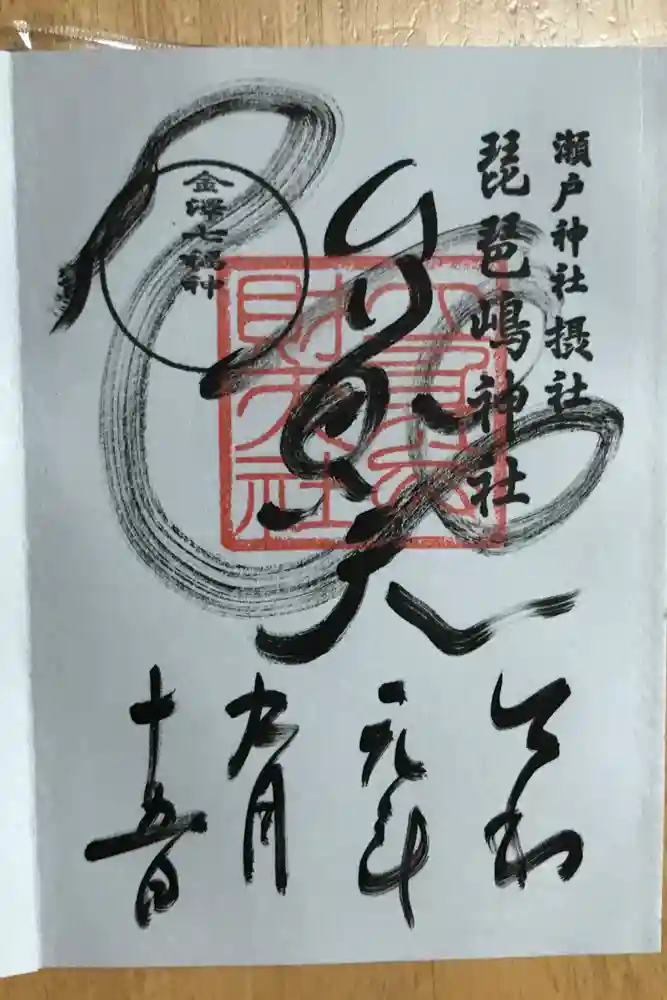 瀬戸神社摂社
琵琶嶋神社
弁財天
金澤七福神
財天社
令和
元年
九月
十五日